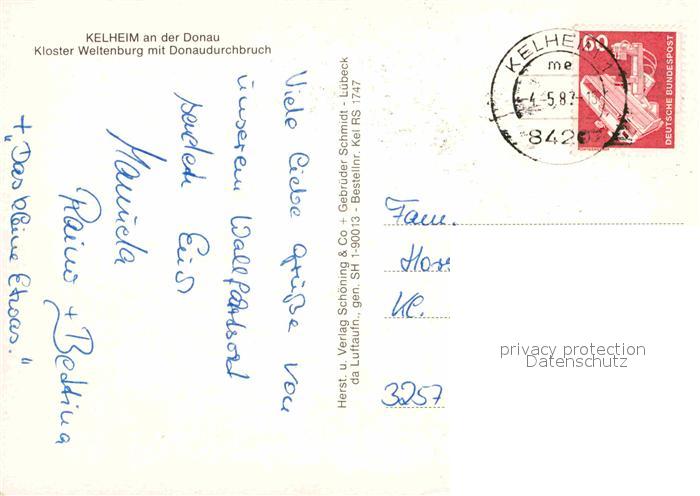 KELHEIM an der Donau
Kloster Weltenburg mit Donaudurchbruch
Viele liebe Grüße von
unserem Wallfahrtsort
senden Euch
Manuela
Raino + Bettina
+ „Das kleine Etwas."
Herst. u. Verlag Schöning & Co + Gebrüder Schmidt - Lübeck
da Luftaufn., gen. SH 1-90013 - Bestellnr. Kel RS 1747
KELHEIM 1
me
-4.-5.87-
8420
60
DEUTSCHE BUNDESPOST
Fam.
Hor
Kl.
3257
privacy protection
Datenschutz